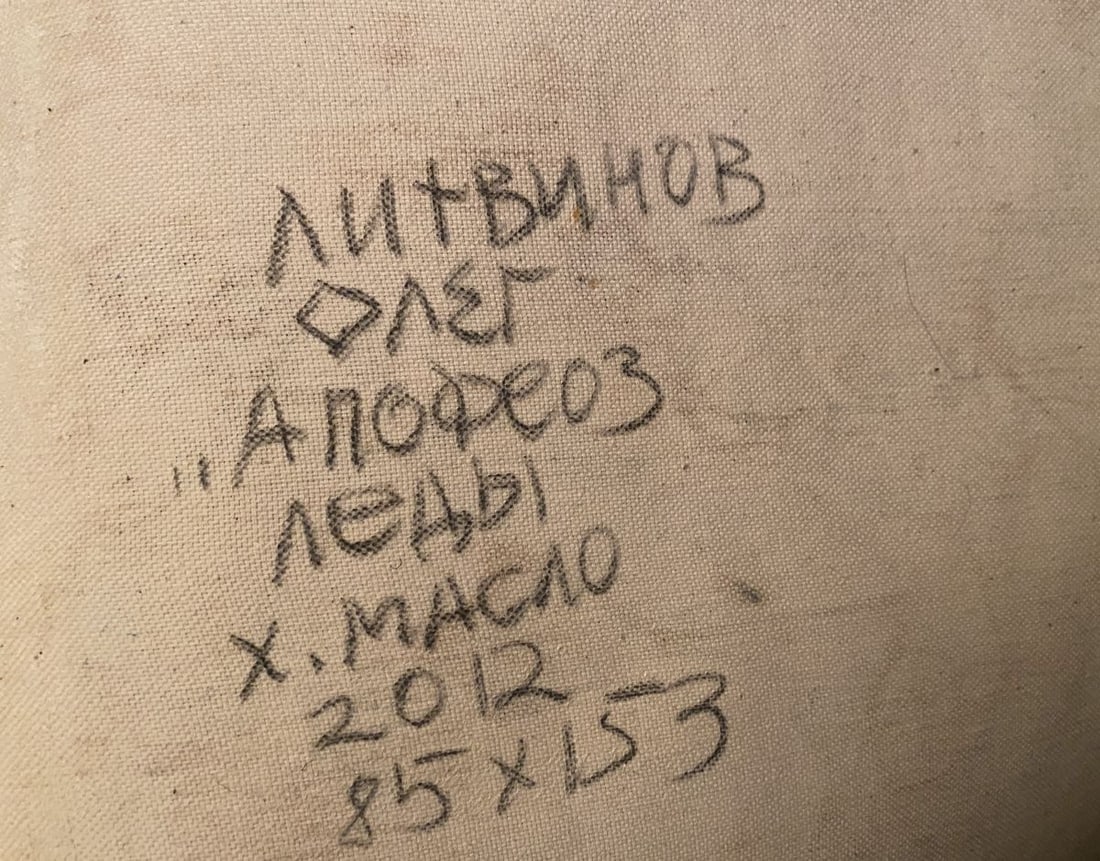 ЛИТВИНОВ
ОЛЕГ
„АПОФЕОЗ
ЛЕДЫ
Х. МАСЛО
2012
85 х 153